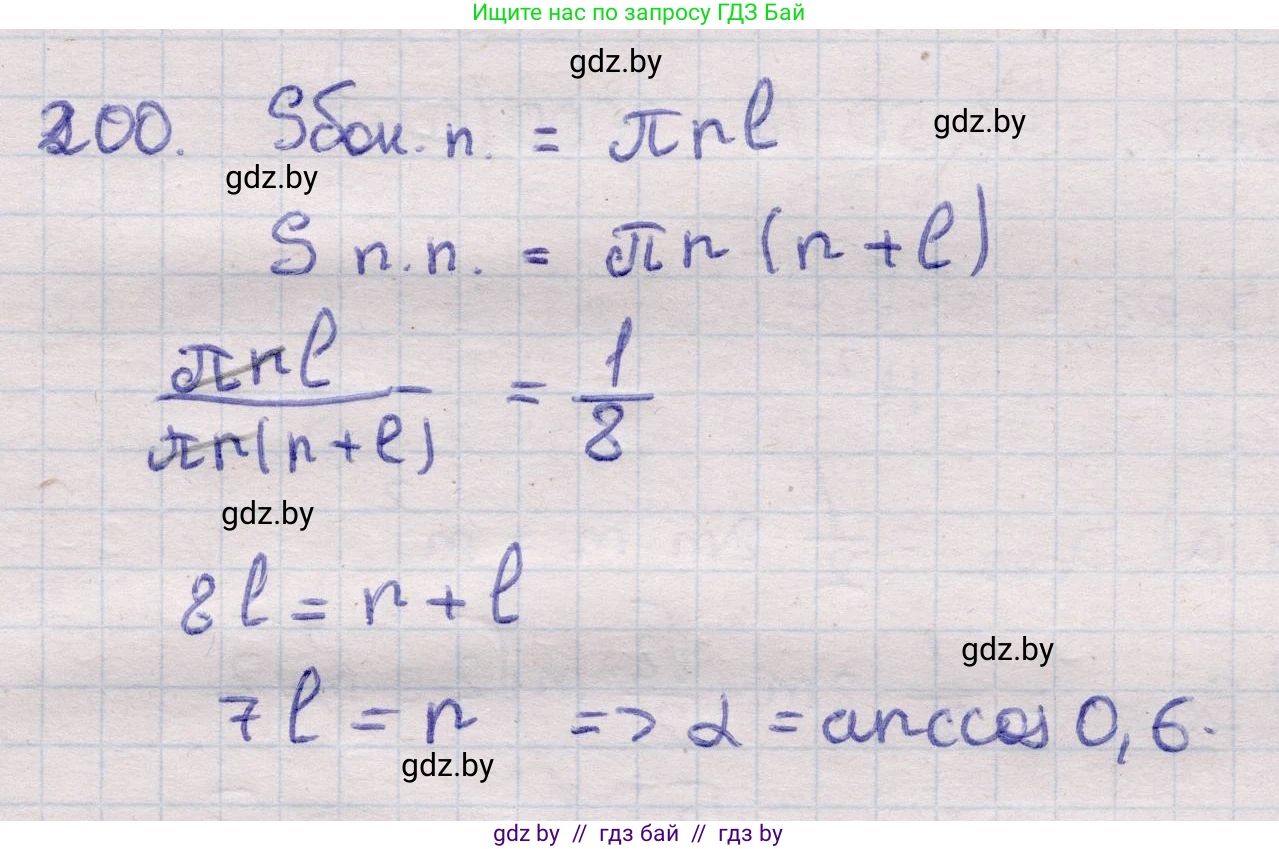 Ищите нас по запросу ГДЗ Бай
gdz.by
200. Sбок. п. = πrl
gdz.by
gdz.by
S п.п. = πr (r + l)
πrl / πr(r + l) = 1/8
gdz.by
8l = r + l
gdz.by
7l = r => α = arccos 0,6.
gdz.by
gdz by // гдз бай // гдз by